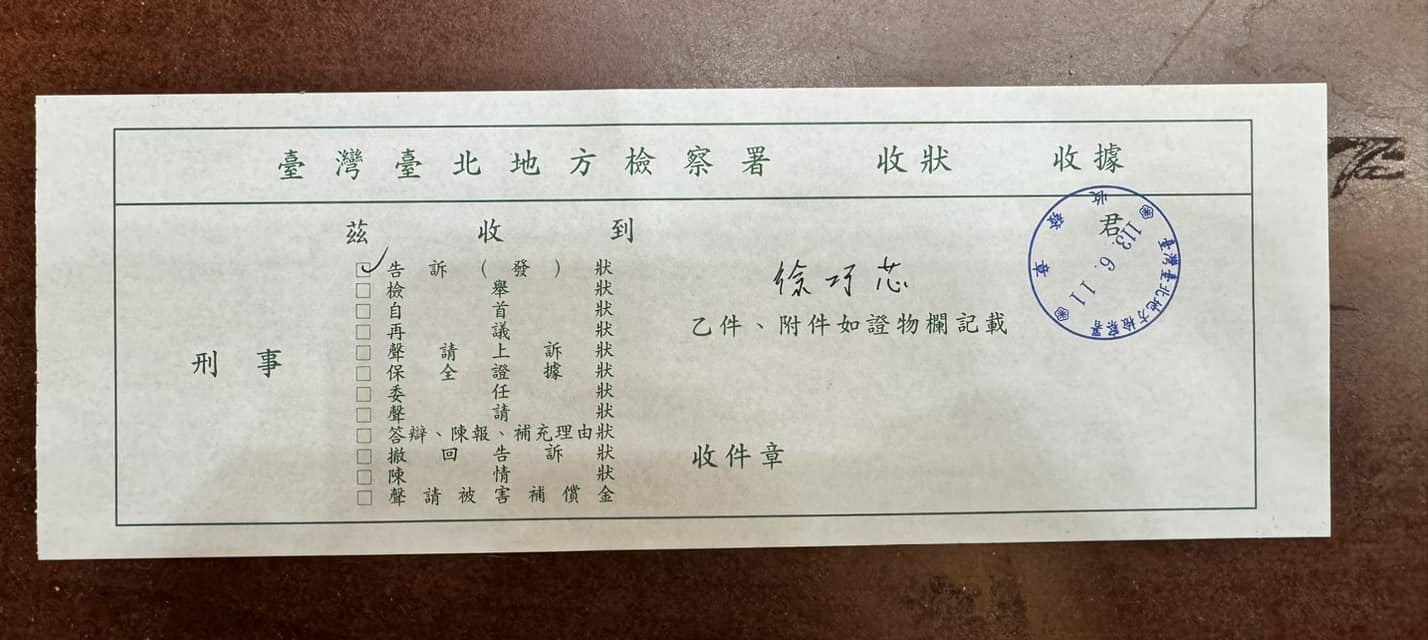 臺灣臺北地方檢察署 收狀 收據
茲收到
徐巧芯 君
乙件、附件如證物欄記載
刑事
□✓告訴(發)狀
□檢舉狀
□自首狀
□再議狀
□聲請上訴狀
□保全證據狀
□委任狀
□聲請狀
□答辯、陳報、補充理由狀
□撤回告訴狀
□陳情狀
□聲請被害補償金
收件章
臺灣臺北地方檢察署
113. 6. 11
收發章